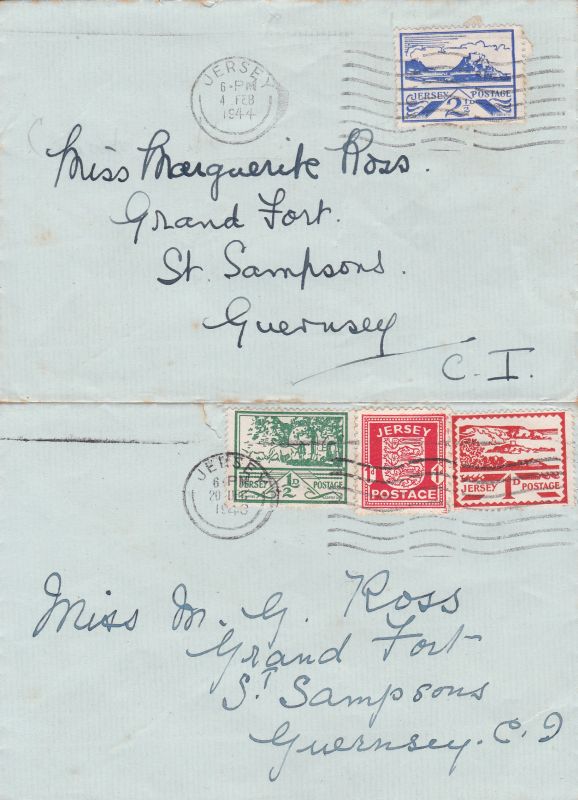 JERSEY
6-PM
4 FEB
1944
JERSEY POSTAGE
2½D
Miss Marguerite Ross.
Grand Fort.
St. Sampsons.
Guernsey
C.I.
JERSEY
6-PM
20
½D
JERSEY POSTAGE
JERSEY
1d
POSTAGE
1D
JERSEY POSTAGE
Miss M. G. Ross
Grand Fort
St Sampsons
Guernsey. C.I